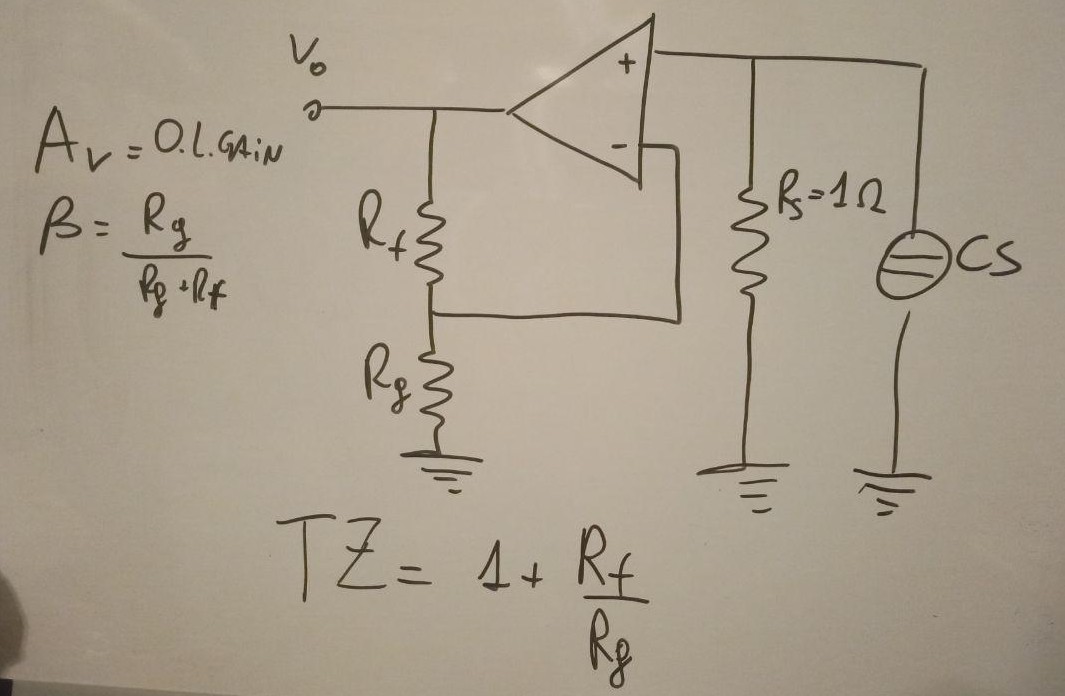 Vo
Av = O.L. GAiN
β = Rg
Rg + Rf
+
-
Rf
Rs = 1Ω
CS
Rg
TZ = 1 + Rf
Rg